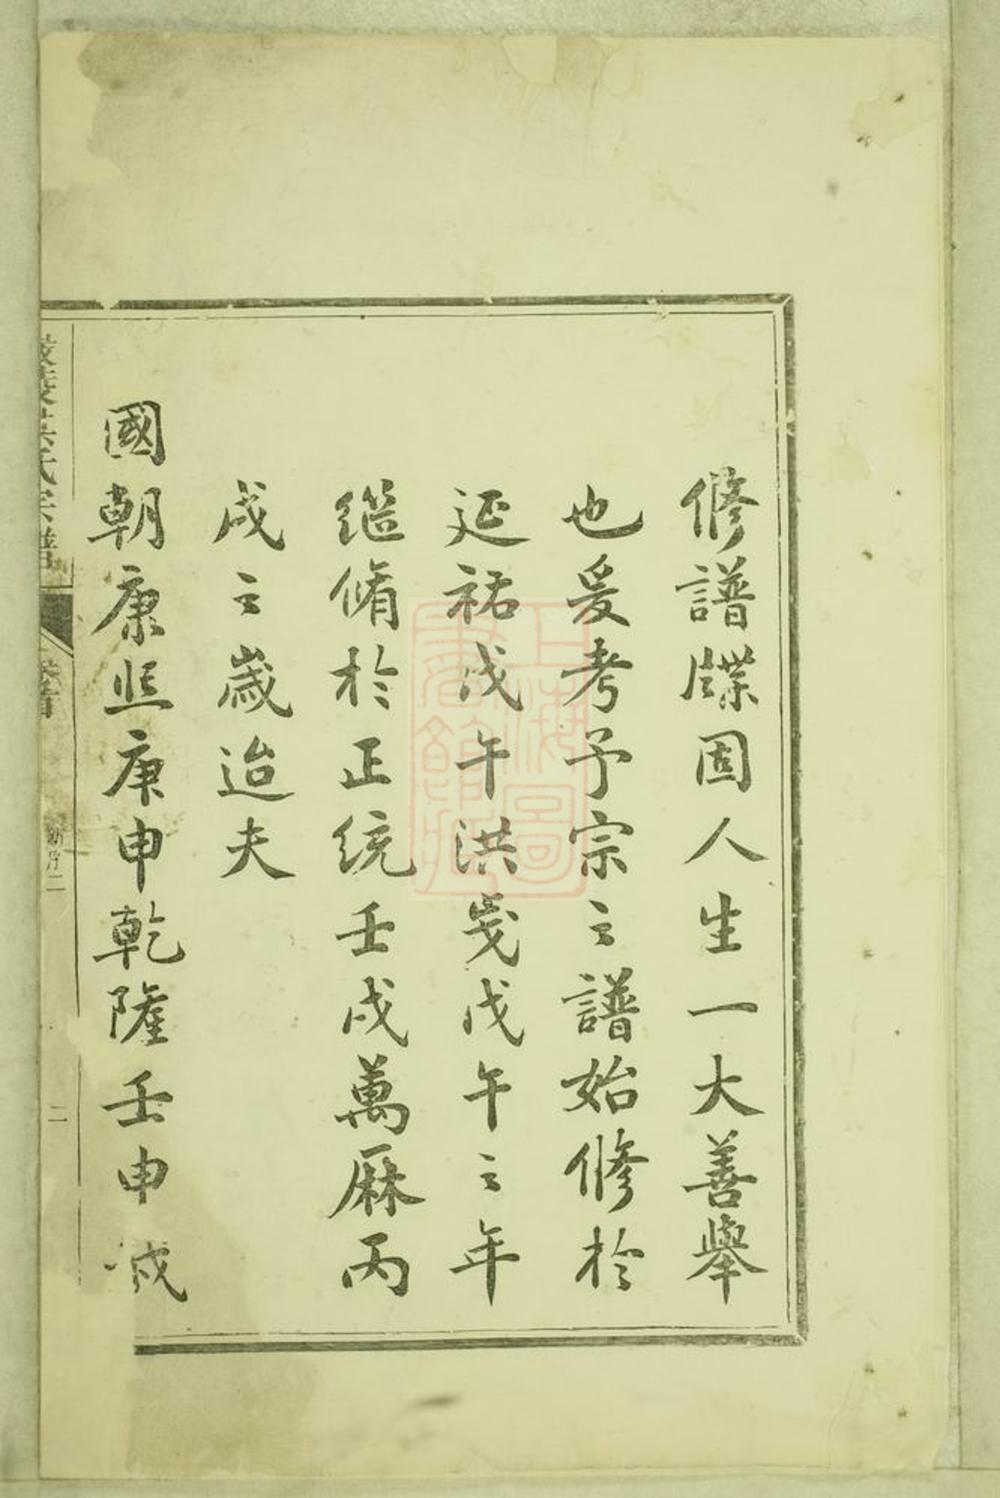 修譜牒固人生一大善舉
也爰考予宗之譜始修於
延祐戊午洪武戊午之年
繼脩於正統壬戌萬厤丙
戌之歲迨夫
國朝康熙庚申乾隆壬申
氏宗譜
卷首
二
上海圖書館藏